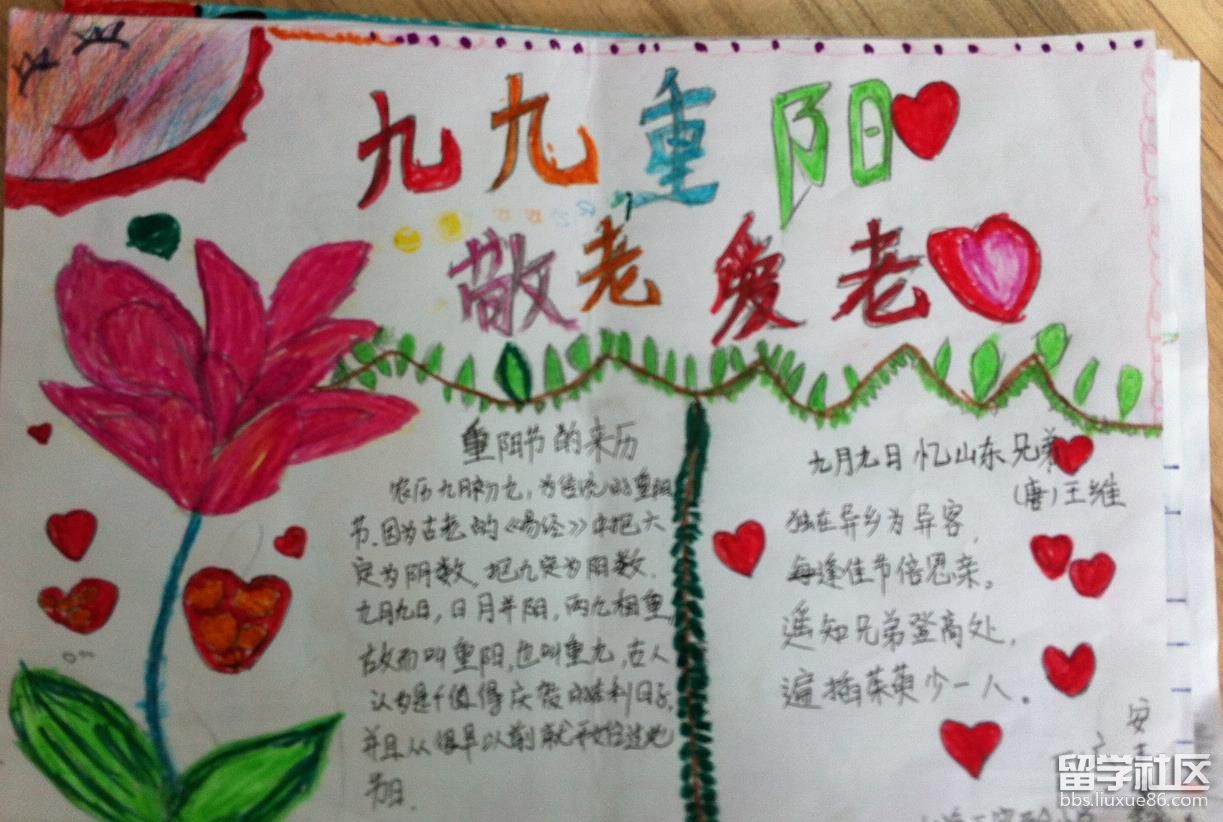 九九重阳
敬老爱老
重阳节的来历
农历九月初九，为传统的重阳
节。因为古老的《易经》中把六
定为阴数，把九定为阳数。
九月九日，日月并阳，两九相重，
故而叫重阳，也叫重九，古人
认为是个值得庆贺的吉利日子，
并且从很早以前就开始过此
节日。
九月九日忆山东兄弟
（唐）王维
独在异乡为异客，
每逢佳节倍思亲。
遥知兄弟登高处，
遍插茱萸少一人。
安
留学社区
bbs.liuxue86.com